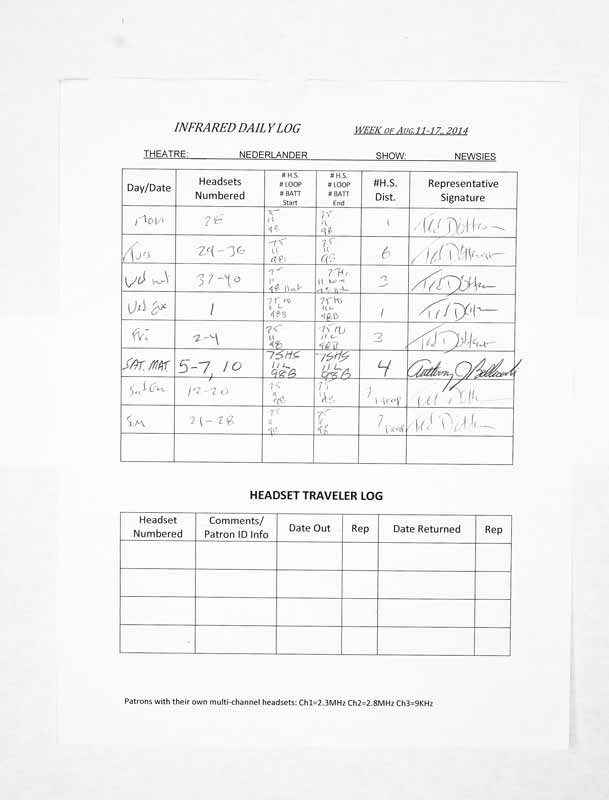 INFRARED DAILY LOG WEEK OF AUG.11-17, 2014
THEATRE: NEDERLANDER SHOW: NEWSIES
Day/Date Headsets Numbered # H.S. # LOOP # BATT Start # H.S. # LOOP # BATT End #H.S. Dist. Representative Signature
Mon 28 75 11 98 75 11 98 1 Ted
Tues 29-36 75 11 98 75 11 98 6 Ted
Wed mat 37-40 75 11 98 Batt 3 Ted
Wed Eve 1 1 Ted
Fri 2-4 75 11 98 3 Ted
SAT. MAT 5-7, 10 75HS 11L 98B 75HS 11L 98B 4 Anthony J
Sat Eve 12-20 Ted
Sun 21-28 Ted
HEADSET TRAVELER LOG
Headset Numbered Comments/ Patron ID Info Date Out Rep Date Returned Rep
Patrons with their own multi-channel headsets: Ch1=2.3MHz Ch2=2.8MHz Ch3=9KHz